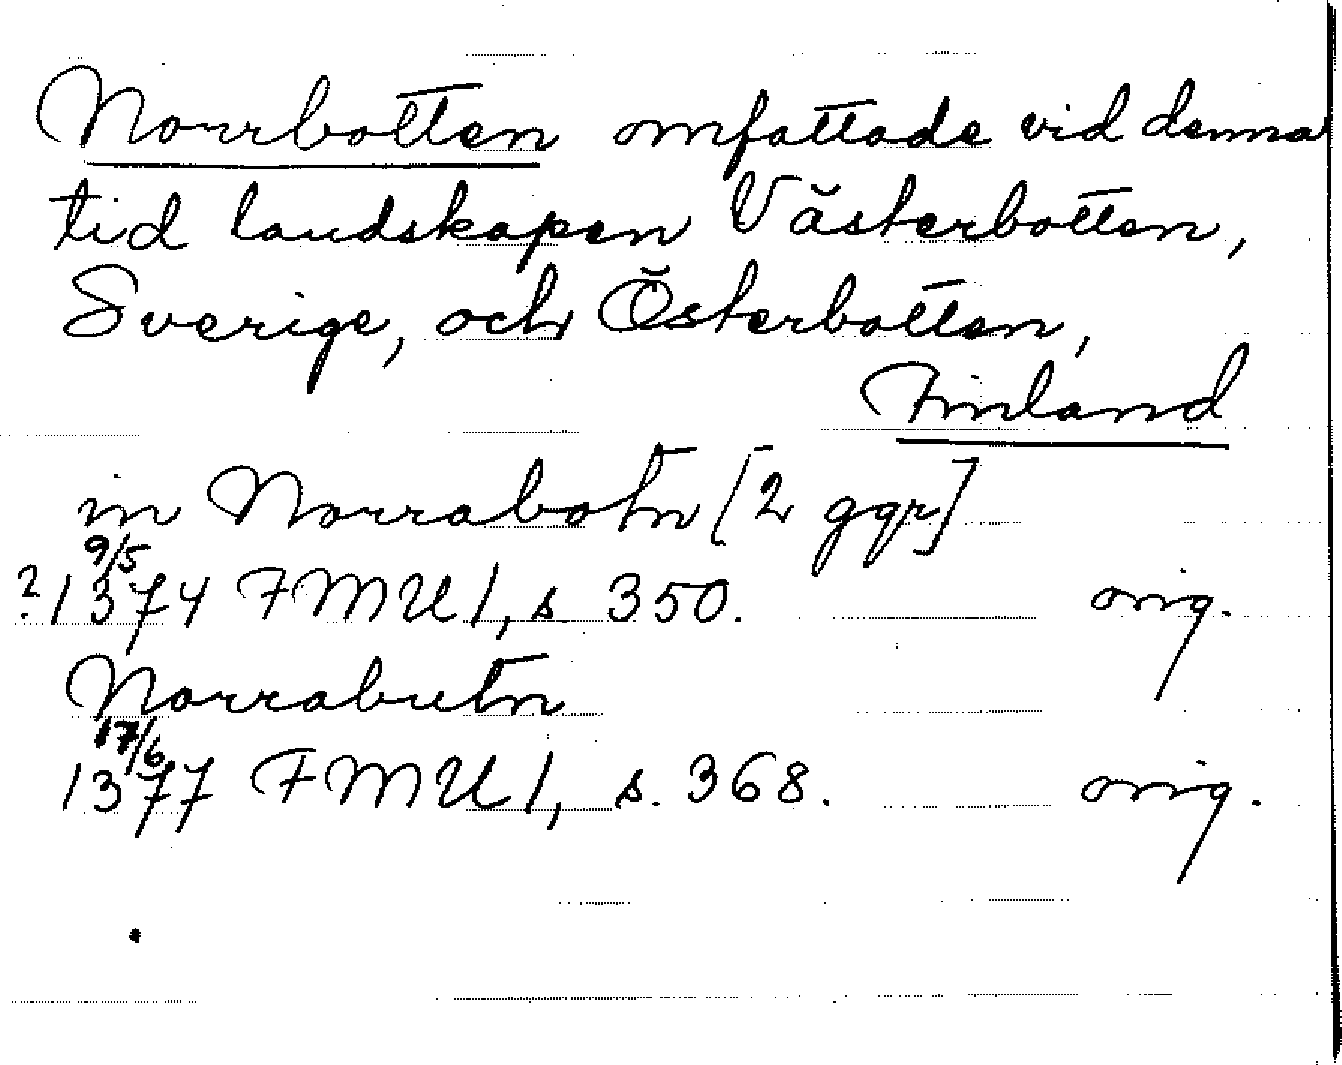 Norrbotten omfattade vid denna
tid landskapen Västerbotten,
Sverige, och Österbotten,
Finland
in Norrabotn [2 ggr]
9/5
?1374 FMU 1, s 350. orig.
Norrabutn
17/6
1377 FMU 1, s. 368. orig.